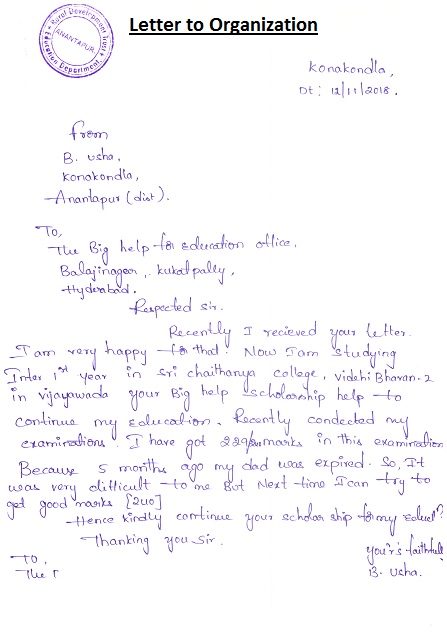 Letter to Organization
Rural Development Trust
ANANTAPUR
Education Department
Konakondla,
Dt: 12/11/2018.
From
B. Usha,
Konakondla,
Anantapur (dist).
To,
The Big help for education office.
Balajinagar, kukatpally,
Hyderabad.
Respected sir.
Recently I recieved your letter.
I am very happy for that. Now I am studying
Inter 1st year in sri chaithanya college, Videhi Bhavan-2
in vijayawada your Big help scholarship help to
continue my education. Recently condected my
examinations. I have got marks in this examination
Because 5 months ago my dad was expired. So, It
was very difficult to me But Next time I can try to
get good marks [240]
Hence kindly continue your scholar ship for my
Thanking you sir.
your's faithfully
B. Usha.
To,
The